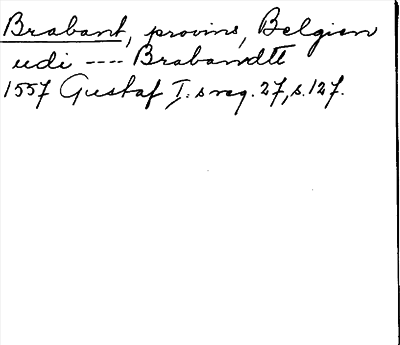 Brabant, provins, Belgien
udi ---- Brabandtt
1557 Gustaf I:s reg. 27, s. 127.